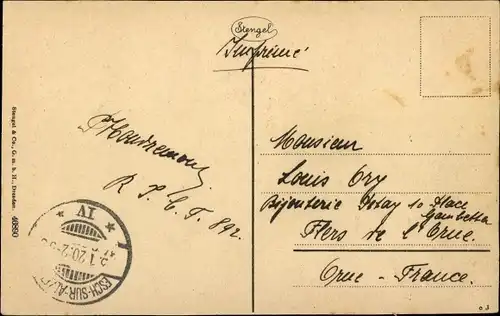 Stengel
Imprimé
Stengel & Co., G. m. b. H., Dresden 46890
R I C I 892.
Monsieur
Louis Ory
Bijouterie 10 Place
Gambetta
Flers de l'Orne.
Orne - France.
* IV *
.1.20.2-3
ESCH-SUR-AL